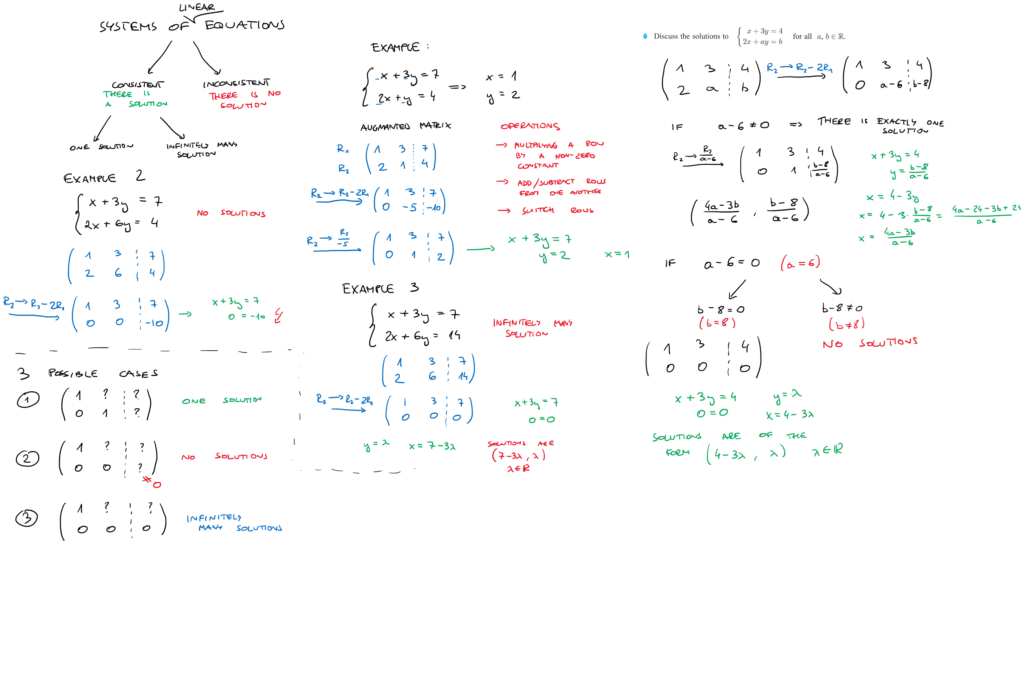 LINEAR
SYSTEMS OF EQUATIONS
CONSISTENT
THERE IS
A SOLUTION
INCONSISTENT
THERE IS NO
SOLUTION
ONE SOLUTION
INFINITELY MANY
SOLUTION
EXAMPLE 2
x + 3y = 7
2x + 6y = 4
NO SOLUTIONS
1 3 7
2 6 4
R₂→R₂-2R₁
1 3 7
0 0 -10
→ x+3y=7
0=-10
3 POSSIBLE CASES
① 1 ? ?
0 1 ?
ONE SOLUTION
② 1 ? ?
0 0 ?
NO SOLUTIONS
③ 1 ? ?
0 0 0
INFINITELY
MANY SOLUTIONS
EXAMPLE :
x + 3y = 7
2x + y = 4
=> x = 1
y = 2
AUGMANTED MATRIX
R₁ 1 3 7
R₂ 2 1 4
R₂→R₂-2R₁
1 3 7
0 -5 -10
R₂→R₂/-5
1 3 7
0 1 2
→ x + 3y = 7
y = 2 x = 1
OPERATIONS
→ MULTIPLYING A ROW
BY A NON-ZERO
CONSTANT
→ ADD/SUBTRACT ROWS
FROM ONE ANOTHER
→ SWITCH ROWS
EXAMPLE 3
x + 3y = 7
2x + 6y = 14
INFINITELY MANY
SOLUTION
1 3 7
2 6 14
R₂→R₂-2R₁
1 3 7
0 0 0
x+3y=7
0=0
y=λ x=7-3λ
SOLUTIONS ARE
(7-3λ, λ)
λ∈ℝ
6 Discuss the solutions to { x + 3y = 4
2x + ay = b
for all a, b ∈ ℝ.
1 3 4
2 a b
R₂→R₂-2R₁
1 3 4
0 a-6 b-8
IF a-6≠0 => THERE IS EXACTLY ONE
SOLUTION
R₂→R₂/a-6
1 3 4
0 1 b-8/a-6
x+3y=4
y = b-8/a-6
x = 4-3y
x = 4-3·b-8/a-6 = 4a-24-3b+24/a-6
x = 4a-3b/a-6
(4a-3b/a-6 , b-8/a-6)
IF a-6=0 (a=6)
b-8=0
(b=8)
b-8≠0
(b≠8)
NO SOLUTIONS
1 3 4
0 0 0
x+3y=4 y=λ
0=0 x=4-3λ
SOLUTIONS ARE OF THE
FORM (4-3λ, λ) λ∈ℝ